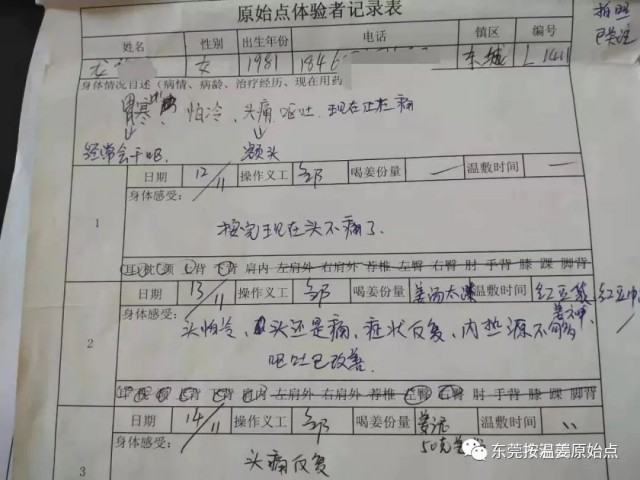 原始点体验者记录表
拍照
已关注
姓名 性别 出生年份 电话 镇区 编号
女 1981 1846 东城 L1411
身体情况自述(病情、病龄、治疗经历、现在用药
胃寒 怕冷、头痛 呕吐 现在正在痛
经常会干呕 额头
日期 12/11 操作义工 邹 喝姜份量 一 温敷时间 一
身体感受:
1
按完现在头不痛了.
耳 枕 颈 上背 下背 肩内 左肩外 右肩外 荐椎 左臀 右臀 肘 手背 膝 踝 脚背
日期 13/11 操作义工 邹 喝姜份量 姜汤太淡 温敷时间 红豆袋 红豆
身体感受:
2
头怕冷, 头还是痛, 症状反复, 内热源不够
呕吐已改善.
肩内 左肩外 右肩外 荐椎 左臀 右臀 肘 手背 膝 踝 脚背
日期 14/11 操作义工 邹 喝姜份量 温敷时间
身体感受:
50克
3
头痛反复
东莞按温姜原始点